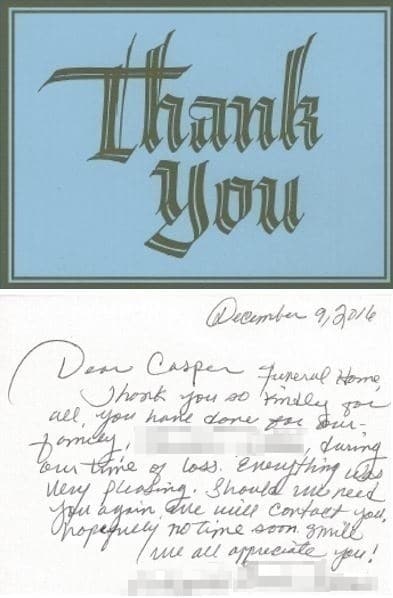 Thank
You
December 9, 2016
Dear Casper Funeral Home,
Thank you so kindly for
all, you have done for our
family, , during
our time of loss. Everything was
very pleasing. Should we need
you again we will contact you,
hopefully no time soon. Smile
We all appreciate you!